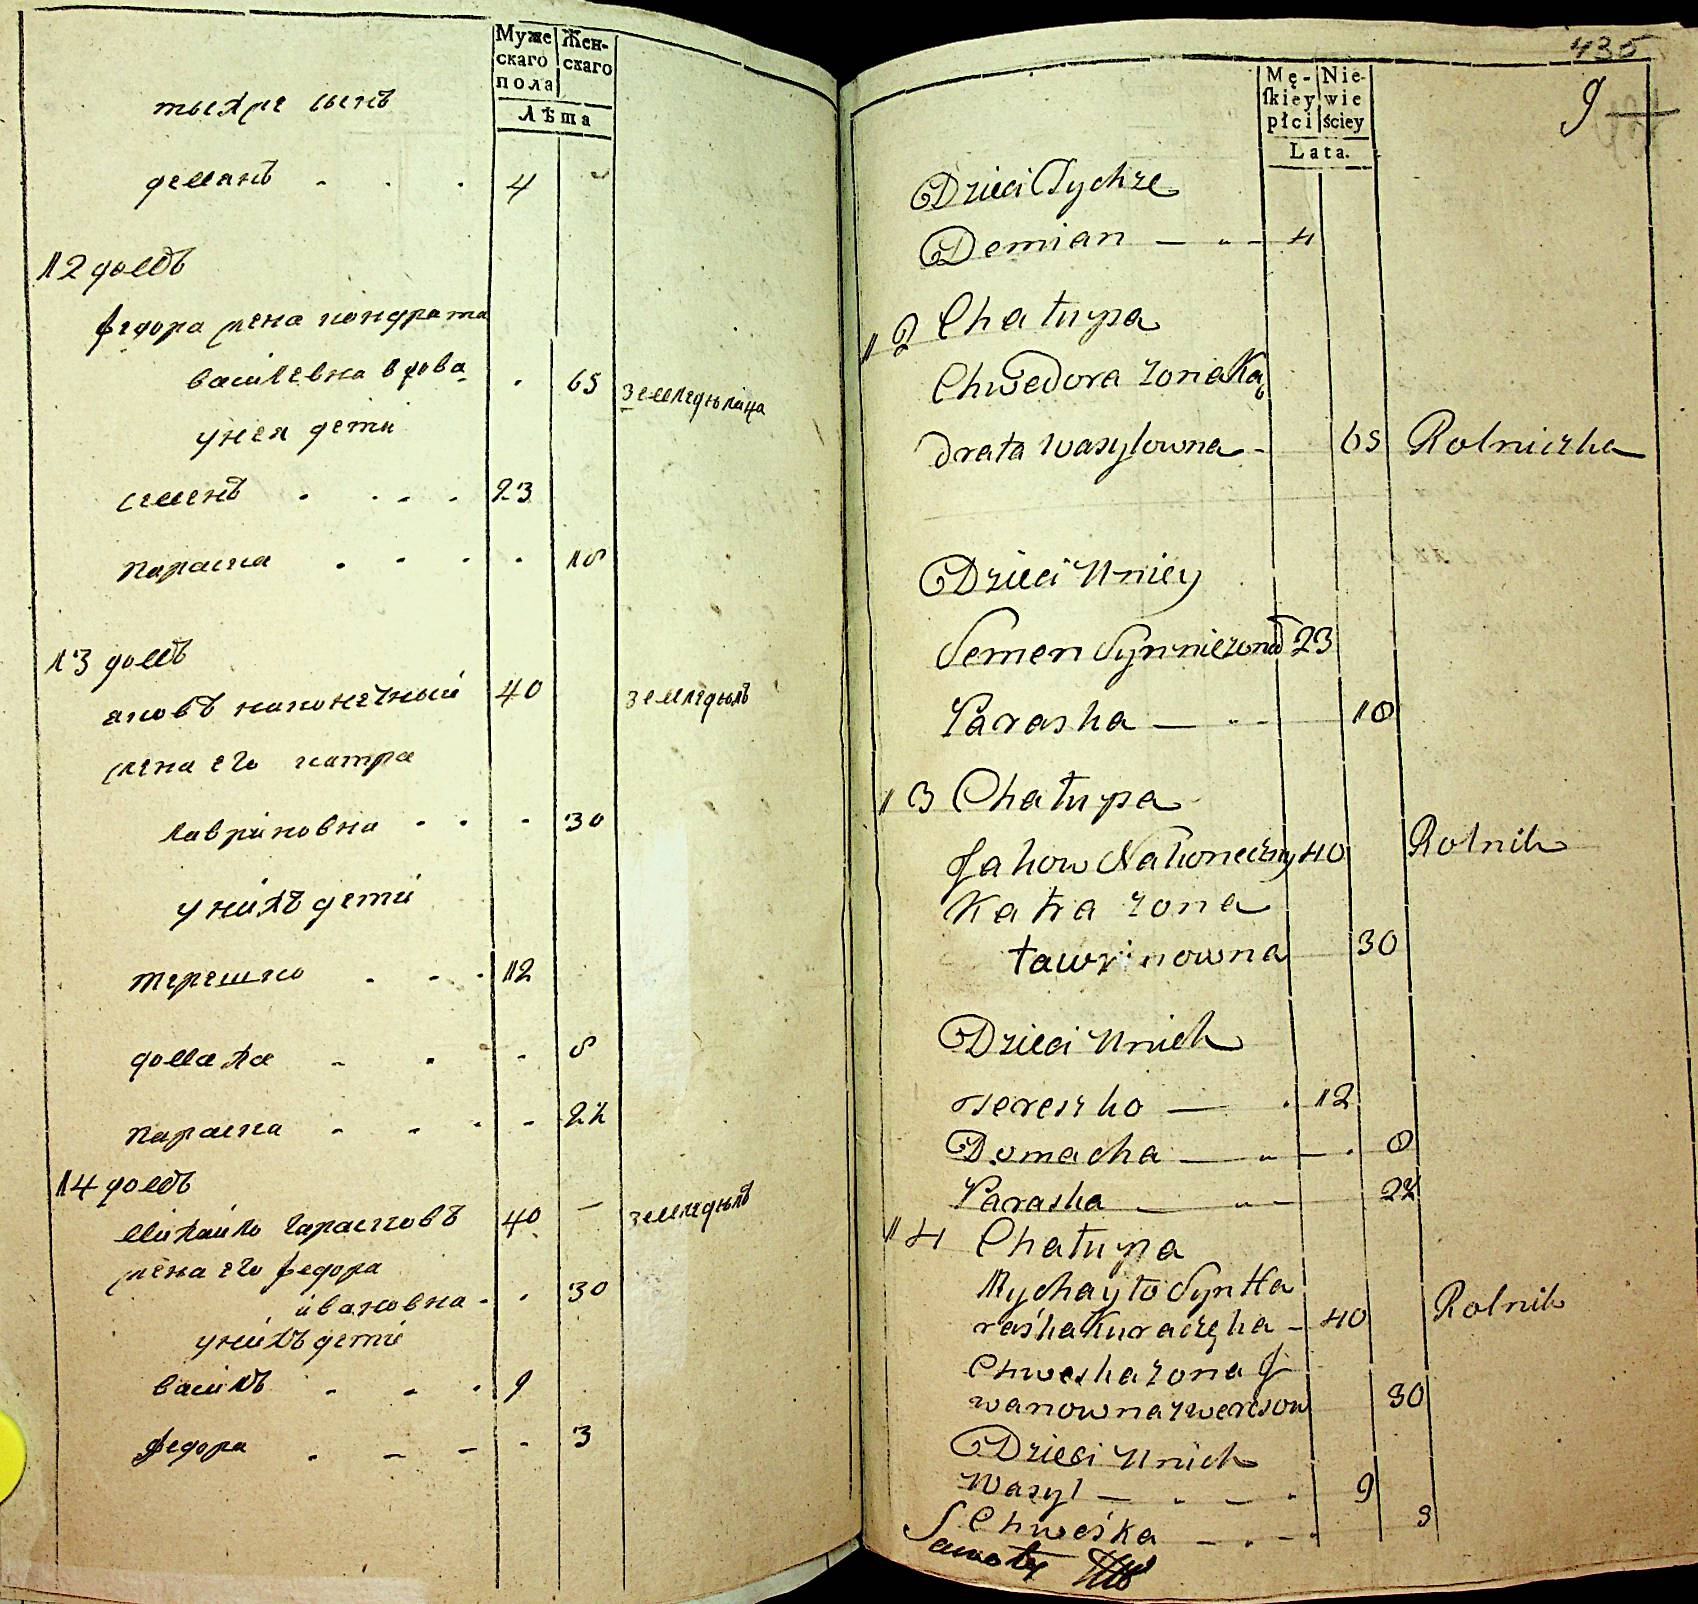 Муже Жен-
скаго скаго
пола
Лѣта
тыхже сынъ
деманъ . . . 4
12 домъ
федора жена кондрата
василевна вдова . 65 земледѣлица
унея дети
семенъ . . . . 23
параска . . . . 18
13 домъ
яковъ наконечный 40 земледѣлъ
жена его катра
лавриновна . . . 30
унихъ дети
терешко . . . 12
домаха . . . 8
параска . . . . 22
14 домъ
михайло гарасковъ 40 земледѣлъ
жена его федора
ивановна . . 30
унихъ дети
василь . . . 9
федора . . . . 3
435
9
Mę- Nie-
ſkiey wie
płci ściey
Lata.
Dzieci Tychże
Demian — " — 4
12 Chałupa
Chwedora żona Ka
drata Wasylowna - 65 Rolniczka
Dzieci Uniey
Semen Syn nieżonat 23
Paraska — " - 18
13 Chałupa
Jakow Nakoneczny 40 Rolnik
Katra żona
ławrinowna 30
Dzieci Unich
Tereszko — . 12
Domacha — " — . 8
Paraska — " — 22
14 Chałupa
Mychayło Syn Ha
raśka - 40 Rolnik
Chweska żona J
wanowna 30
Dzieci Unich
Wasyl — . — . 9
Chweśka — . — . 3